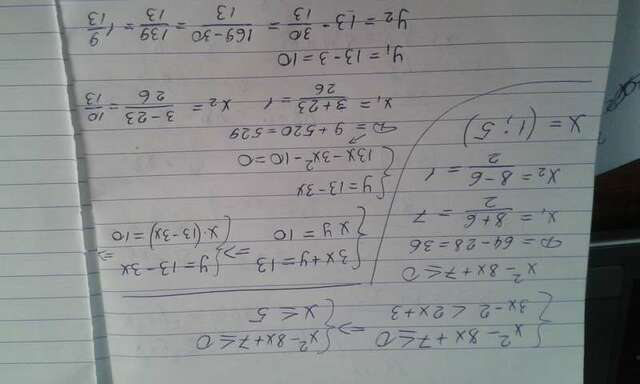 { x² - 8x + 7 ≤ 0 => { x² - 8x + 7 ≤ 0
{ 3x - 2 < 2x + 3 { x ≤ 5
x² - 8x + 7 ≤ 0
D = 64 - 28 = 36
x₁ = (8+6)/2 = 7
x₂ = (8-6)/2 = 1
x = (1; 5)
{ 3x + y = 13 => { y = 13 - 3x =>
{ xy = 10 { x·(13-3x) = 10
{ y = 13 - 3x
{ 13x - 3x² - 10 = 0
D = 9 + 520 = 529
x₁ = (3+23)/26 = 1 x₂ = (3-23)/26 = 10/13
y₁ = 13 - 3 = 10
y₂ = 13 - 30/13 = (169-30)/13 = 139/13 = 1 9/13